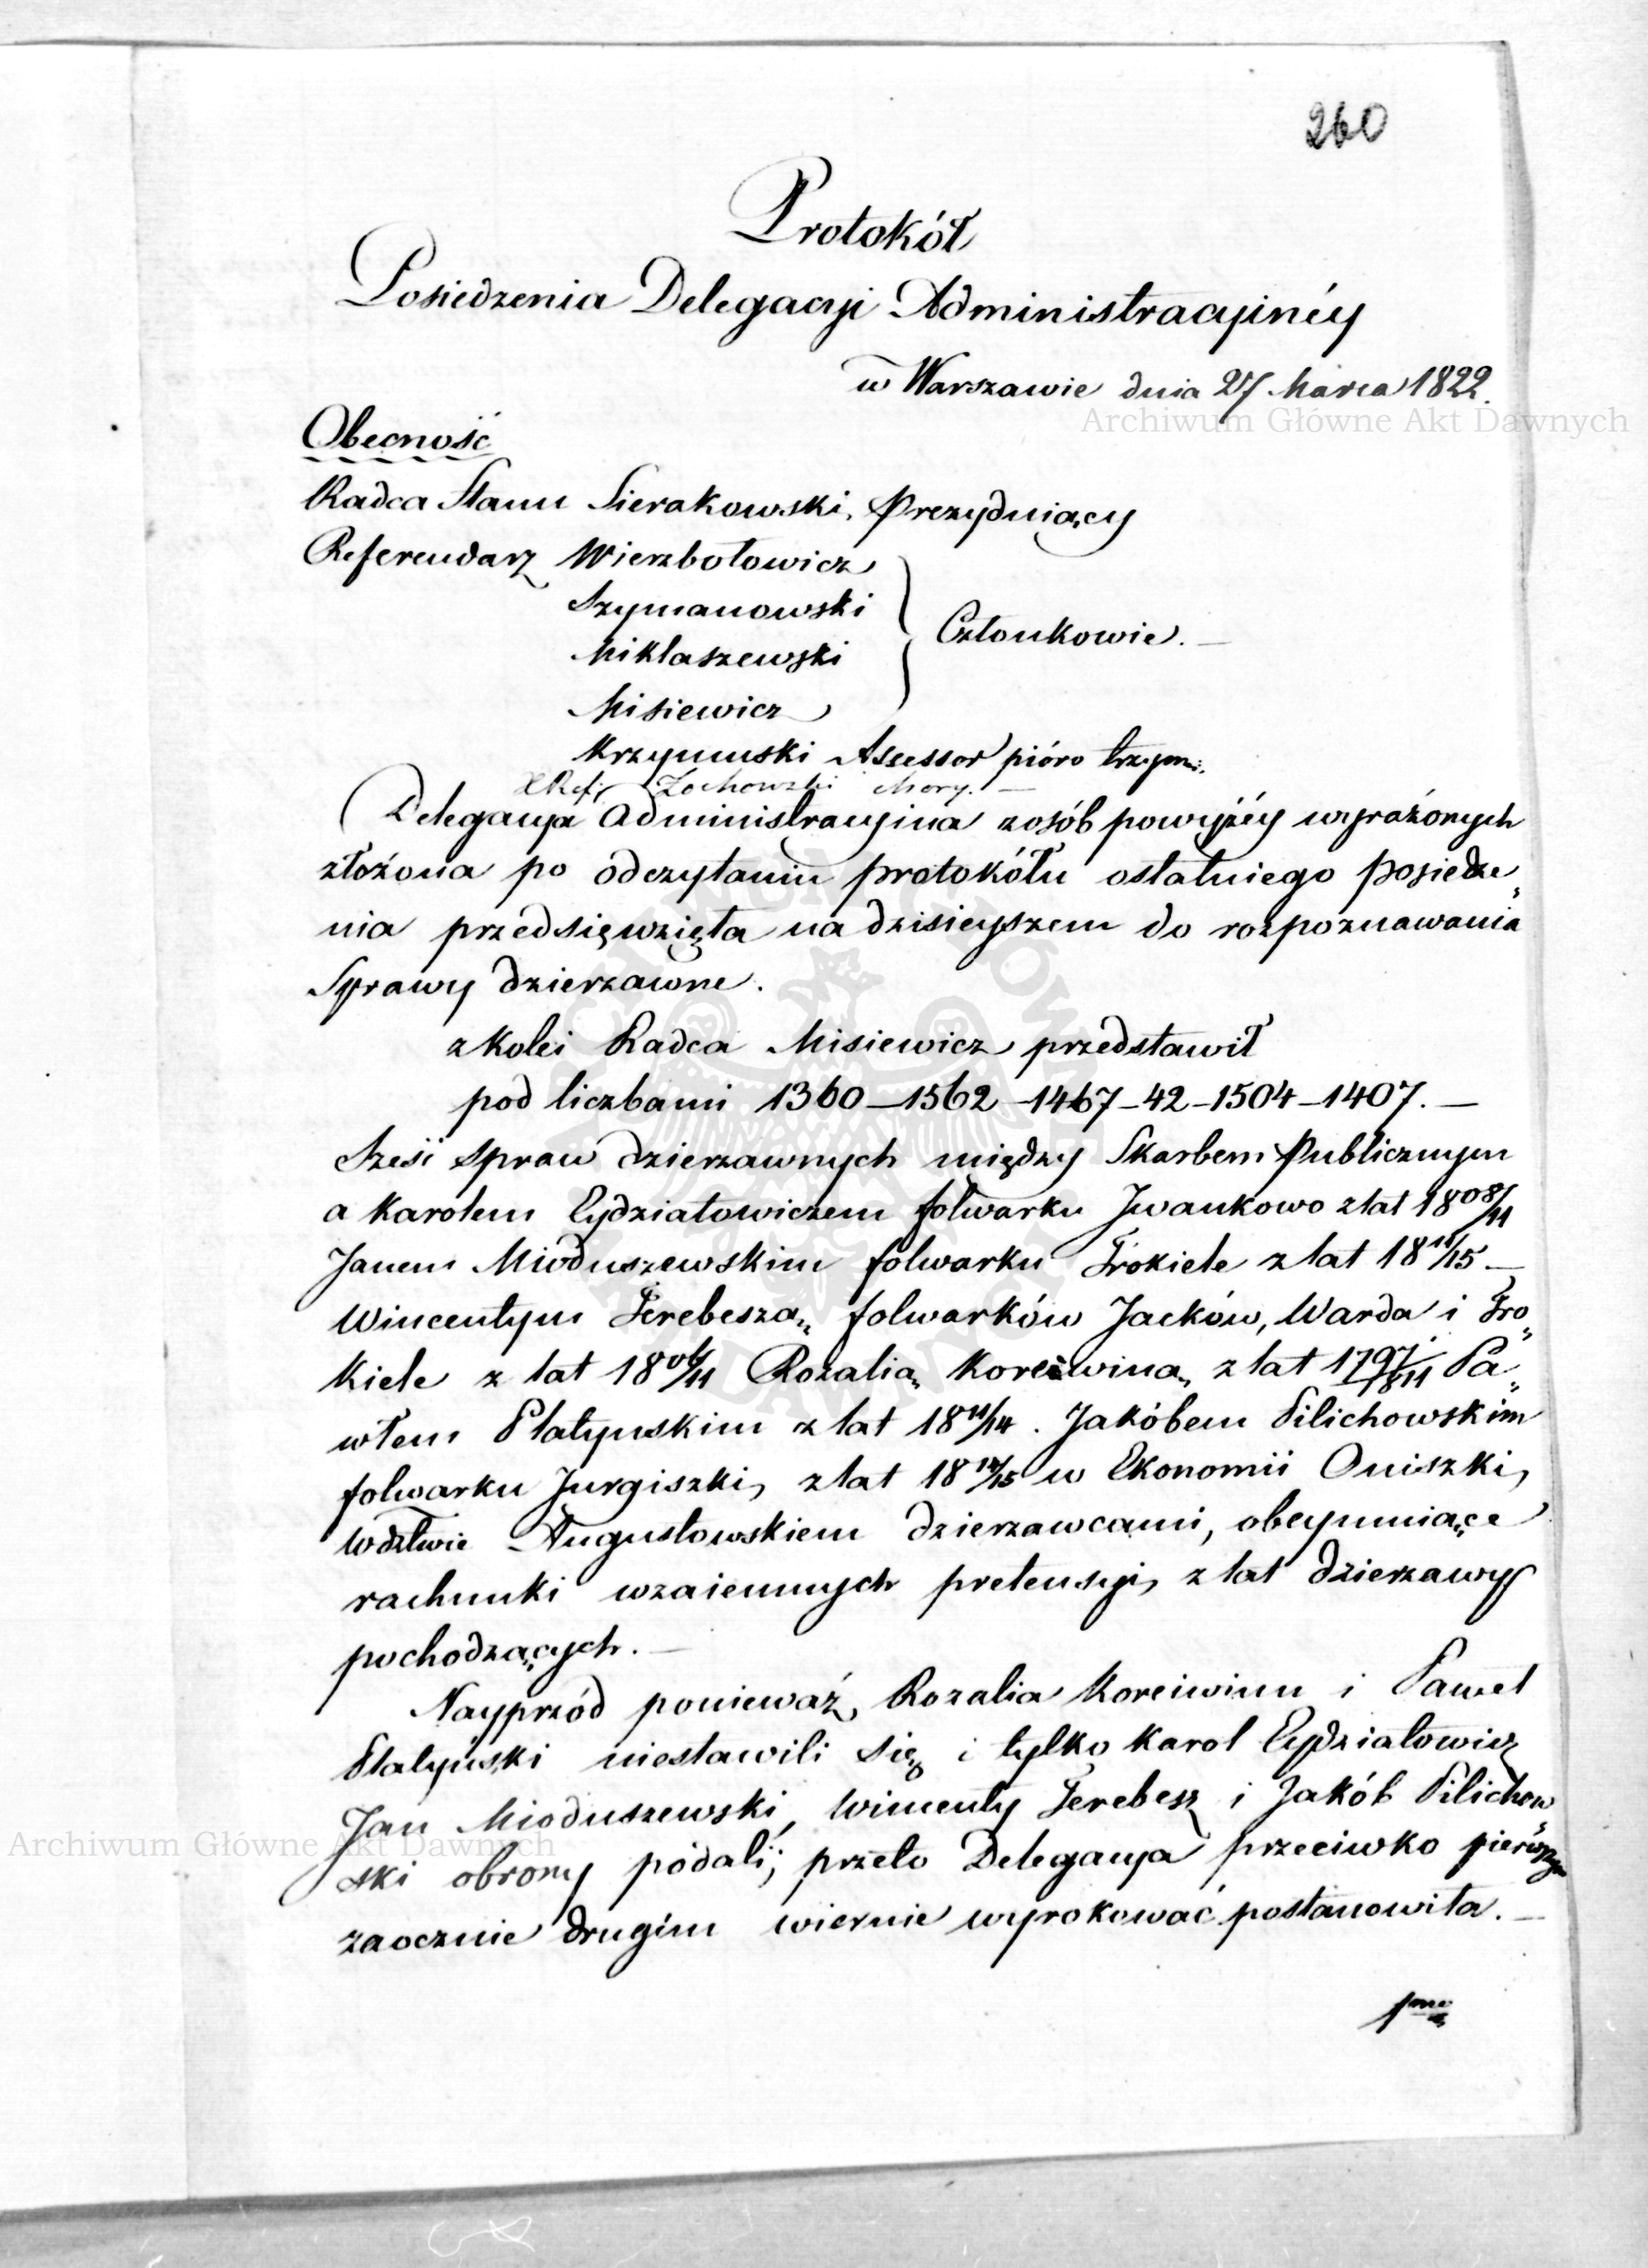 260
Protokół
Posiedzenia Delegacyi Administracyinéy
w Warszawie dnia 27 Marca 1822.
Archiwum Główne Akt Dawnych
Obecność
Radca Stanu Sierakowski, Prezyduiący
Referendarz Wierzbołowicz
Szymanowski
Członkowie. —
Miklaszewski
Misiewicz
Krzymuski Assessor pióro trzym:
Ref: Żochowski chory. —
Delegacya Administracyina zosób powyżéy wyrażonych
złożona po odczytaniu protokółu ostatniego posiedze„
nia przedsięwzięła na dzisieyszem do rozpoznawania
Sprawy dzierzawne.
z Kolei Radca Misiewicz przedstawił
pod liczbami 1360 — 1562 — 1467 — 42 — 1504 — 1407. —
Sześć spraw dzierzawnych między Skarbem Publicznym
a Karolem Eydziatowiczem folwarku Jwankowo z lat 1808/11
Janem Mioduszewskim folwarku Trokiele z lat 1811/15 —
Wincentym Terebeszą, folwarków Jacków, Warda i Tro„
kiele z lat 1806/11 Rozalią Koreiwiną, z lat 1797/1811 Pa„
włem Płatyńskim z lat 1811/14. Jakóbem Pilichowskim
folwarku Jurgiszki, z lat 1814/15 w Ekonomii Oniszki,
Wdztwie Augustowskiem dzierzawcami, obeymuiące
rachunki wzaiemnych pretensyi, z lat dzierzawy
pochodzących. —
Nayprzód ponieważ, Rozalia Koreiwinn i Paweł
Płatyński niestawili się, i tylko Karol Eydziatowicz
Jan Mioduszewski, Wincenty Terebesz i Jakób Pilichow„
Archiwum Główne Akt Dawnych
ski obrony podali; przeto Delegacya przeciwko pierwszym
zaocznie drugim wiernie wyrokować postanowiła. —